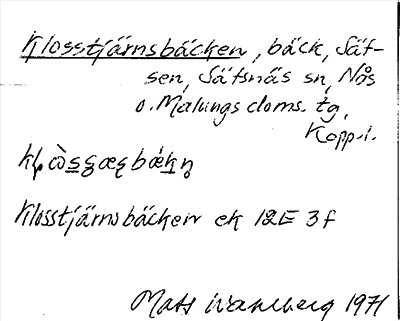 Klosstjärnsbäcken, bäck, Säf-
sen, Säfsnäs sn, Nås
o. Malungs doms. tg,
Kopp. l.
Klosstjärnsbäcken ek 12E 3f
Mats Wahlberg 1971